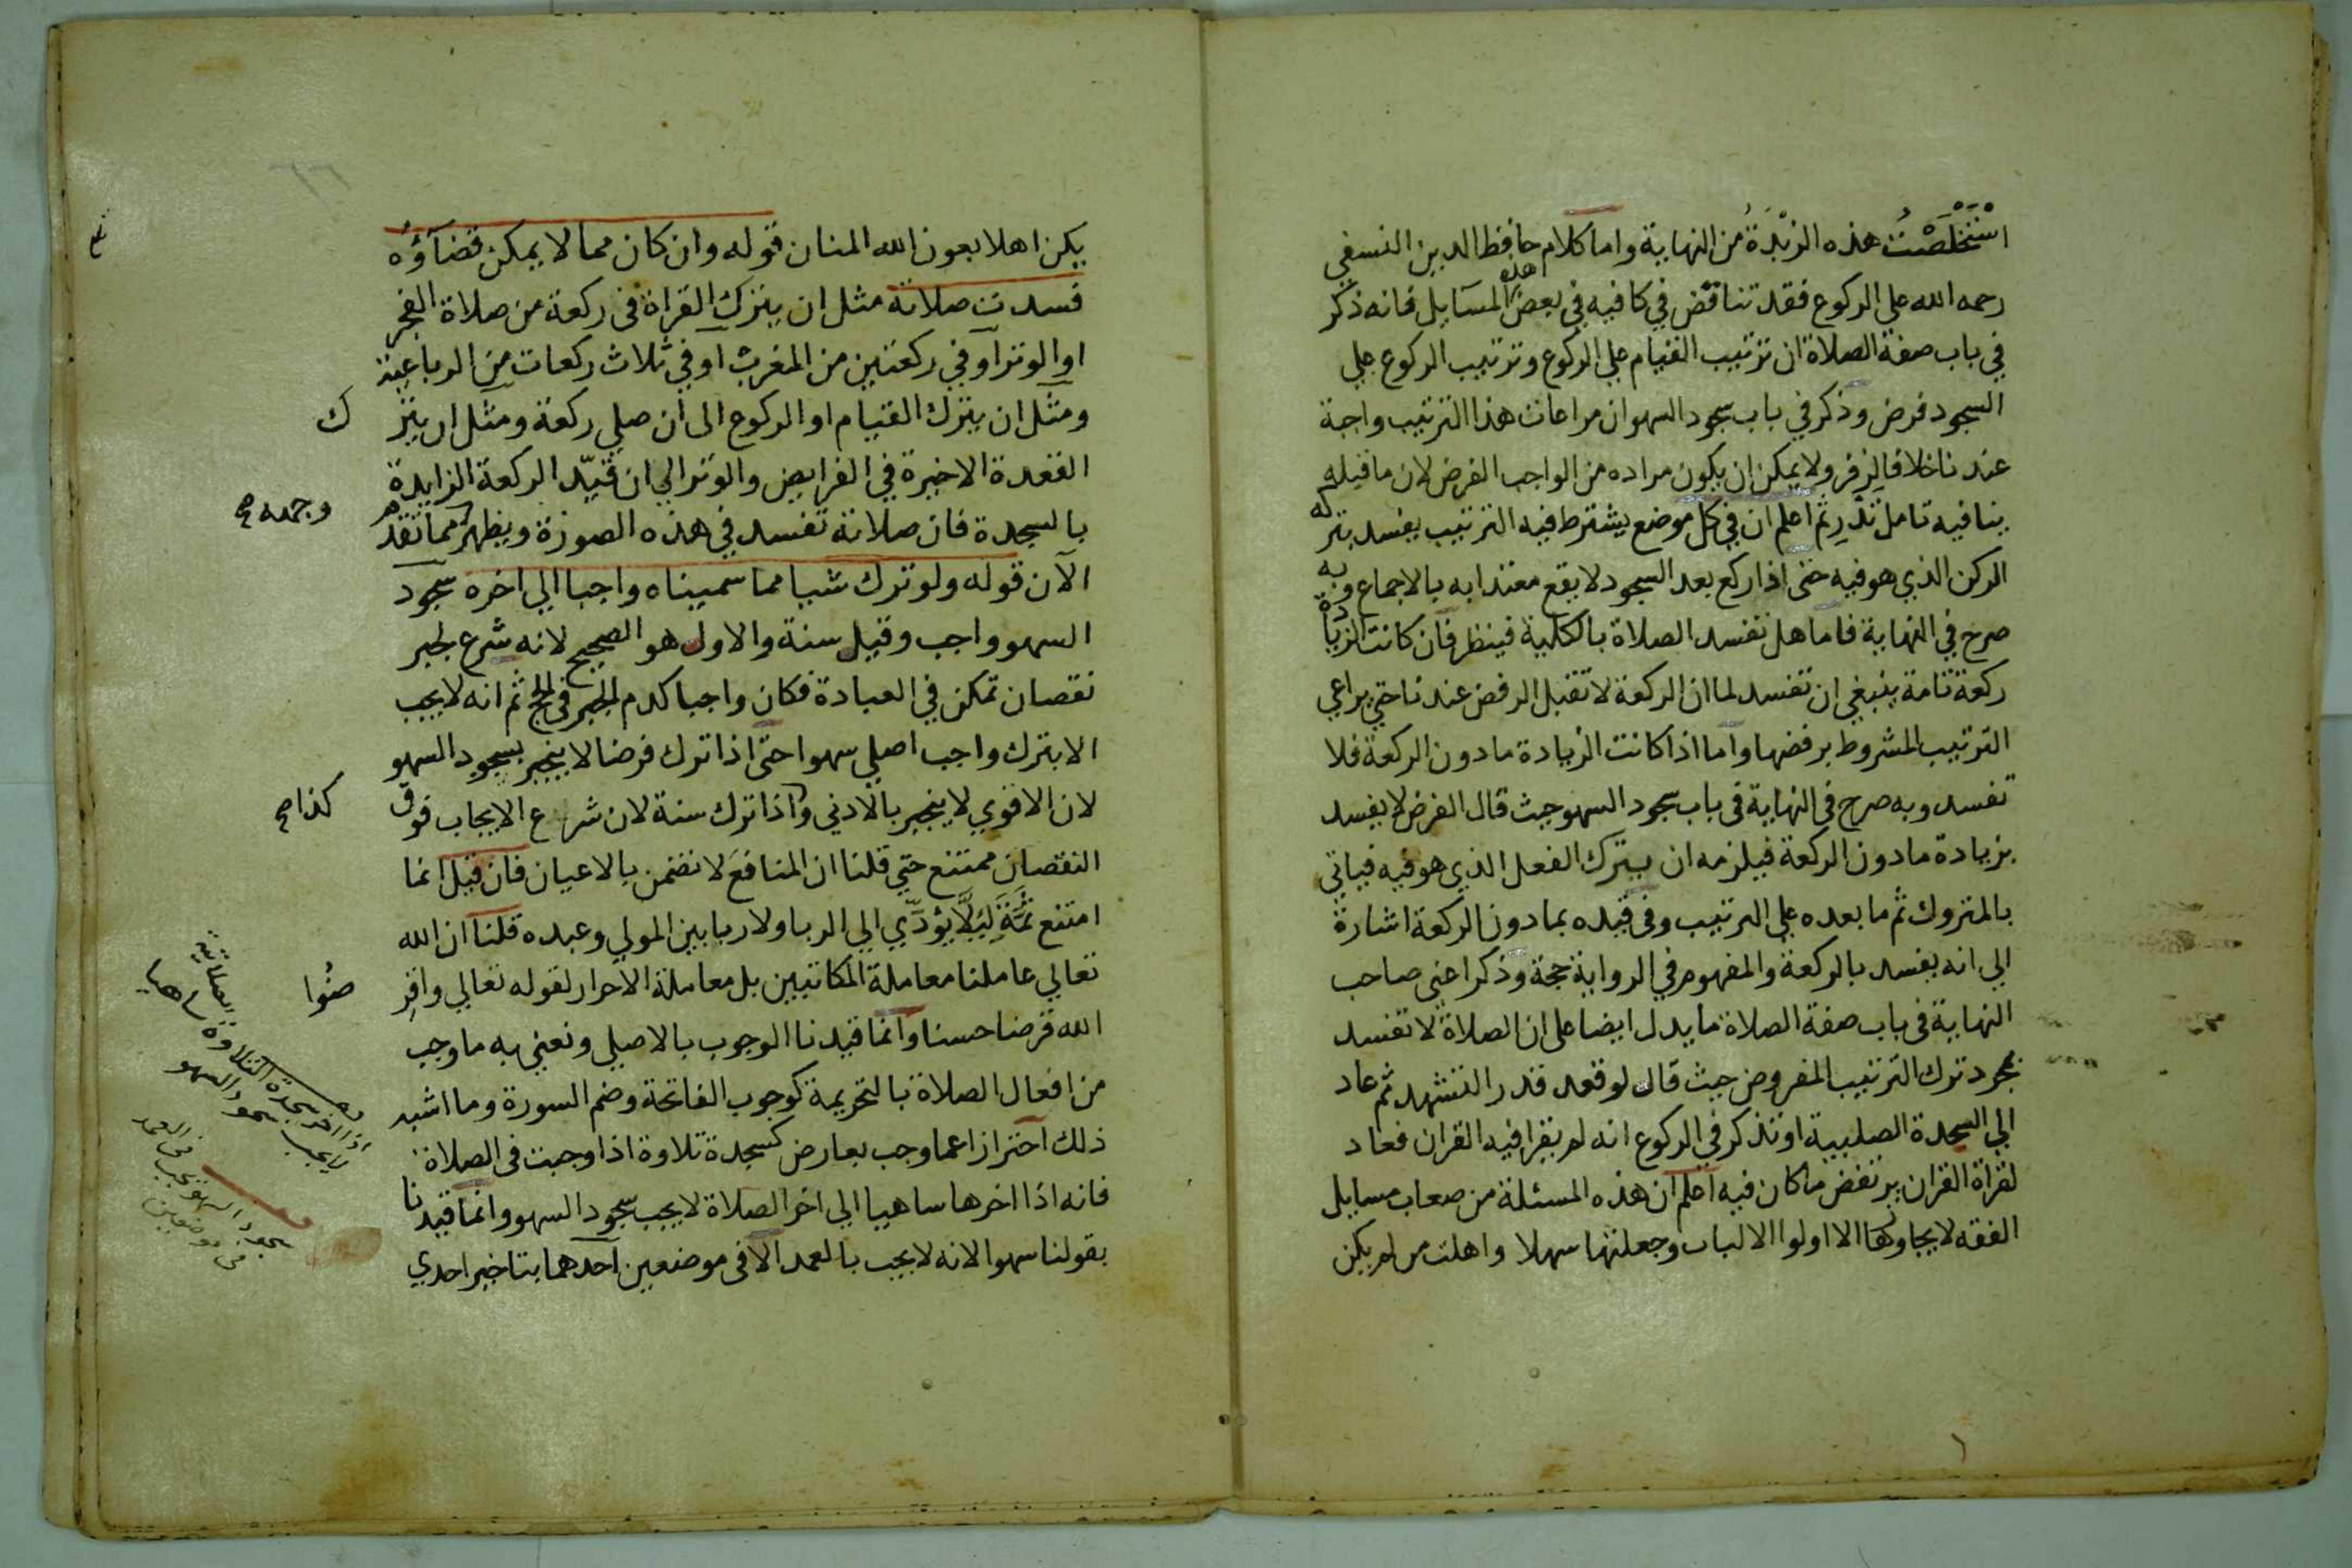 اسْتَخْلَصْتُ هذه الزُبْدَةُ من النهاية واما كلام حافظ الدين النسفي
رحمه الله علي الركوع فقد تناقض في كافيه في بعض هذه المسآيل فانه ذكر
في باب صفة الصلاة ان ترتيب القيام علي الركوع وترتيب الركوع علي
السجود فرض وذكر في باب سجود السهو ان مراعات هذا الترتيب واجبة
عندنا خلافا لزفر ولا يمكن ان يكون مراده من الواجب الفرض لان ما قبله
ينافيه تامل تدر ثم اعلم ان في كل موضع يشترط فيه الترتيب يفسد بتركه
الركن الذي هو فيه حتى اذا ركع بعد السجود لا يقع معتدا به بالاجماع وبه
صرح في النهاية فاما هل تفسد الصلاة بالكلية فينظر فان كانت الزيادة
ركعة تامة ينبغي ان تفسد لما ان الركعة لا تقبل الرفض عندنا حتي يراعي
الترتيب المشروط برفضها واما اذا كانت الزيادة ما دون الركعة فلا
تفسد وبه صرح في النهاية في باب سجود السهو حيث قال الفرض لا يفسد
بزيادة ما دون الركعة فيلزمه ان يترك الفعل الذي هو فيه فياتي
بالمتروك ثم ما بعده علي الترتيب وفي قيده بما دون الركعة اشارة
الي انه يفسد بالركعة والمفهوم في الرواية حجة وذكر اعني صاحب
النهاية في باب صفة الصلاة ما يدل ايضا على ان الصلاة لا تفسد
بمجرد ترك الترتيب المفروض حيث قال لو قعد قدر التشهد ثم عاد
الي السجدة الصلبية او تذكر في الركوع انه لم يقرا فيه القران فعاد
لقراة القران يرتفض ما كان فيه اعلم ان هذه المسئلة من صعاب مسايل
الفقه لا يجاوزها الا اولوا الالباب وجعلتها سهلا واهلت من لم يكن
يكن اهلا بعون الله المنان قوله وان كان مما لا يمكن قضآؤه
فسدت صلاته مثل ان يترك القراة في ركعة من صلاة الفجر
او الوتر او في ركعتين من المغرب او في ثلاث ركعات من الرباعية
ومثل ان يترك القيام او الركوع الى ان صلي ركعة ومثل ان يتر
ك
القعدة الاخيرة في الفرايض والوتر الي ان قيّد الركعة الزايدة
بالسجدة فان صلاته تفسد في هذه الصورة ويظهر مما تقدم
وجهه صح
الآن قوله ولو ترك شيا مما سميناه واجبا الي اخره سجود
السهو واجب وقيل سنة والاول هو الصحيح لانه شرع لجبر
نقصان تمكن في العبادة فكان واجبا كدم الجبر في الحج ثم انه لا يجب
الا بترك واجب اصلي سهوا حتى اذا ترك فرضا لا ينجبر بسجود السهو
لان الاقوي لا ينجبر بالادني واذا ترك سنة لان شرع الايجاب فوق
كذا صح
النقصان ممتنع حتي قلنا ان المنافع لا تضمن بالاعيان فان قيل انما
امتنع ثمَّة لِيَلَّا يؤدّي الي الربا ولا ربا بين المولي وعبده قلنا ان الله
تعالي عاملنا معاملة المكاتبين بل معاملة الاحرار لقوله تعالي واقر
ضُوا
الله قرضا حسنا وانما قيدنا الوجوب بالاصلي ونعني به ما وجب
من افعال الصلاة بالتحريمة كوجوب الفاتحة وضم السورة وما اشبه
ذلك احترازا عما وجب بعارض كسجدة تلاوة اذا وجبت في الصلاة
فانه اذا اخرها ساهيا الي اخر الصلاة لا يجب سجود السهو وانما قيدنا
بقولنا سهوا لانه لا يجب بالعمد الا في موضعين احدهما بتاخير احدي
اذا اخر سجدة التلاوة الصلاتية ساهيا
لا يجب سجود السهو
سجود السهو يجب في العمد
في موضعين